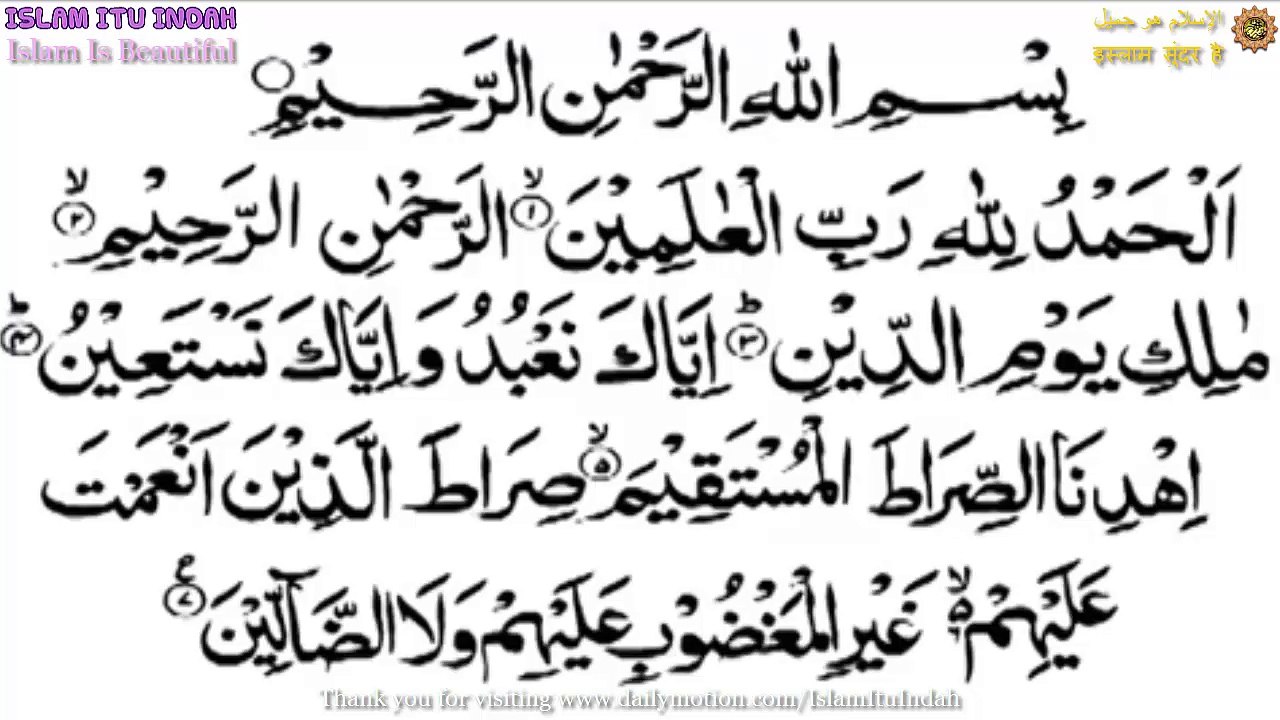 ISLAM ITU INDAH
Islam Is Beautiful
الإسلام هو جميل
इस्लाम सुंदर है
بِسْمِ اللّٰهِ الرَّحْمٰنِ الرَّحِيْمِ
اَلْحَمْدُ لِلّٰهِ رَبِّ الْعٰلَمِيْنَ ۙ﴿۱﴾ الرَّحْمٰنِ الرَّحِيْمِ ۙ﴿۲﴾
مٰلِكِ يَوْمِ الدِّيْنِ ؕ﴿۳﴾ اِيَّاكَ نَعْبُدُ وَاِيَّاكَ نَسْتَعِيْنُ ؕ﴿۴﴾
اِهْدِنَا الصِّرَاطَ الْمُسْتَقِيْمَ ۙ﴿۵﴾ صِرَاطَ الَّذِيْنَ اَنْعَمْتَ
عَلَيْهِمْ ۙ۬ غَيْرِ الْمَغْضُوْبِ عَلَيْهِمْ وَلَا الضَّآلِّيْنَ ﴿۷﴾ ع
Thank you for visiting www.dailymotion.com/IslamItuIndah